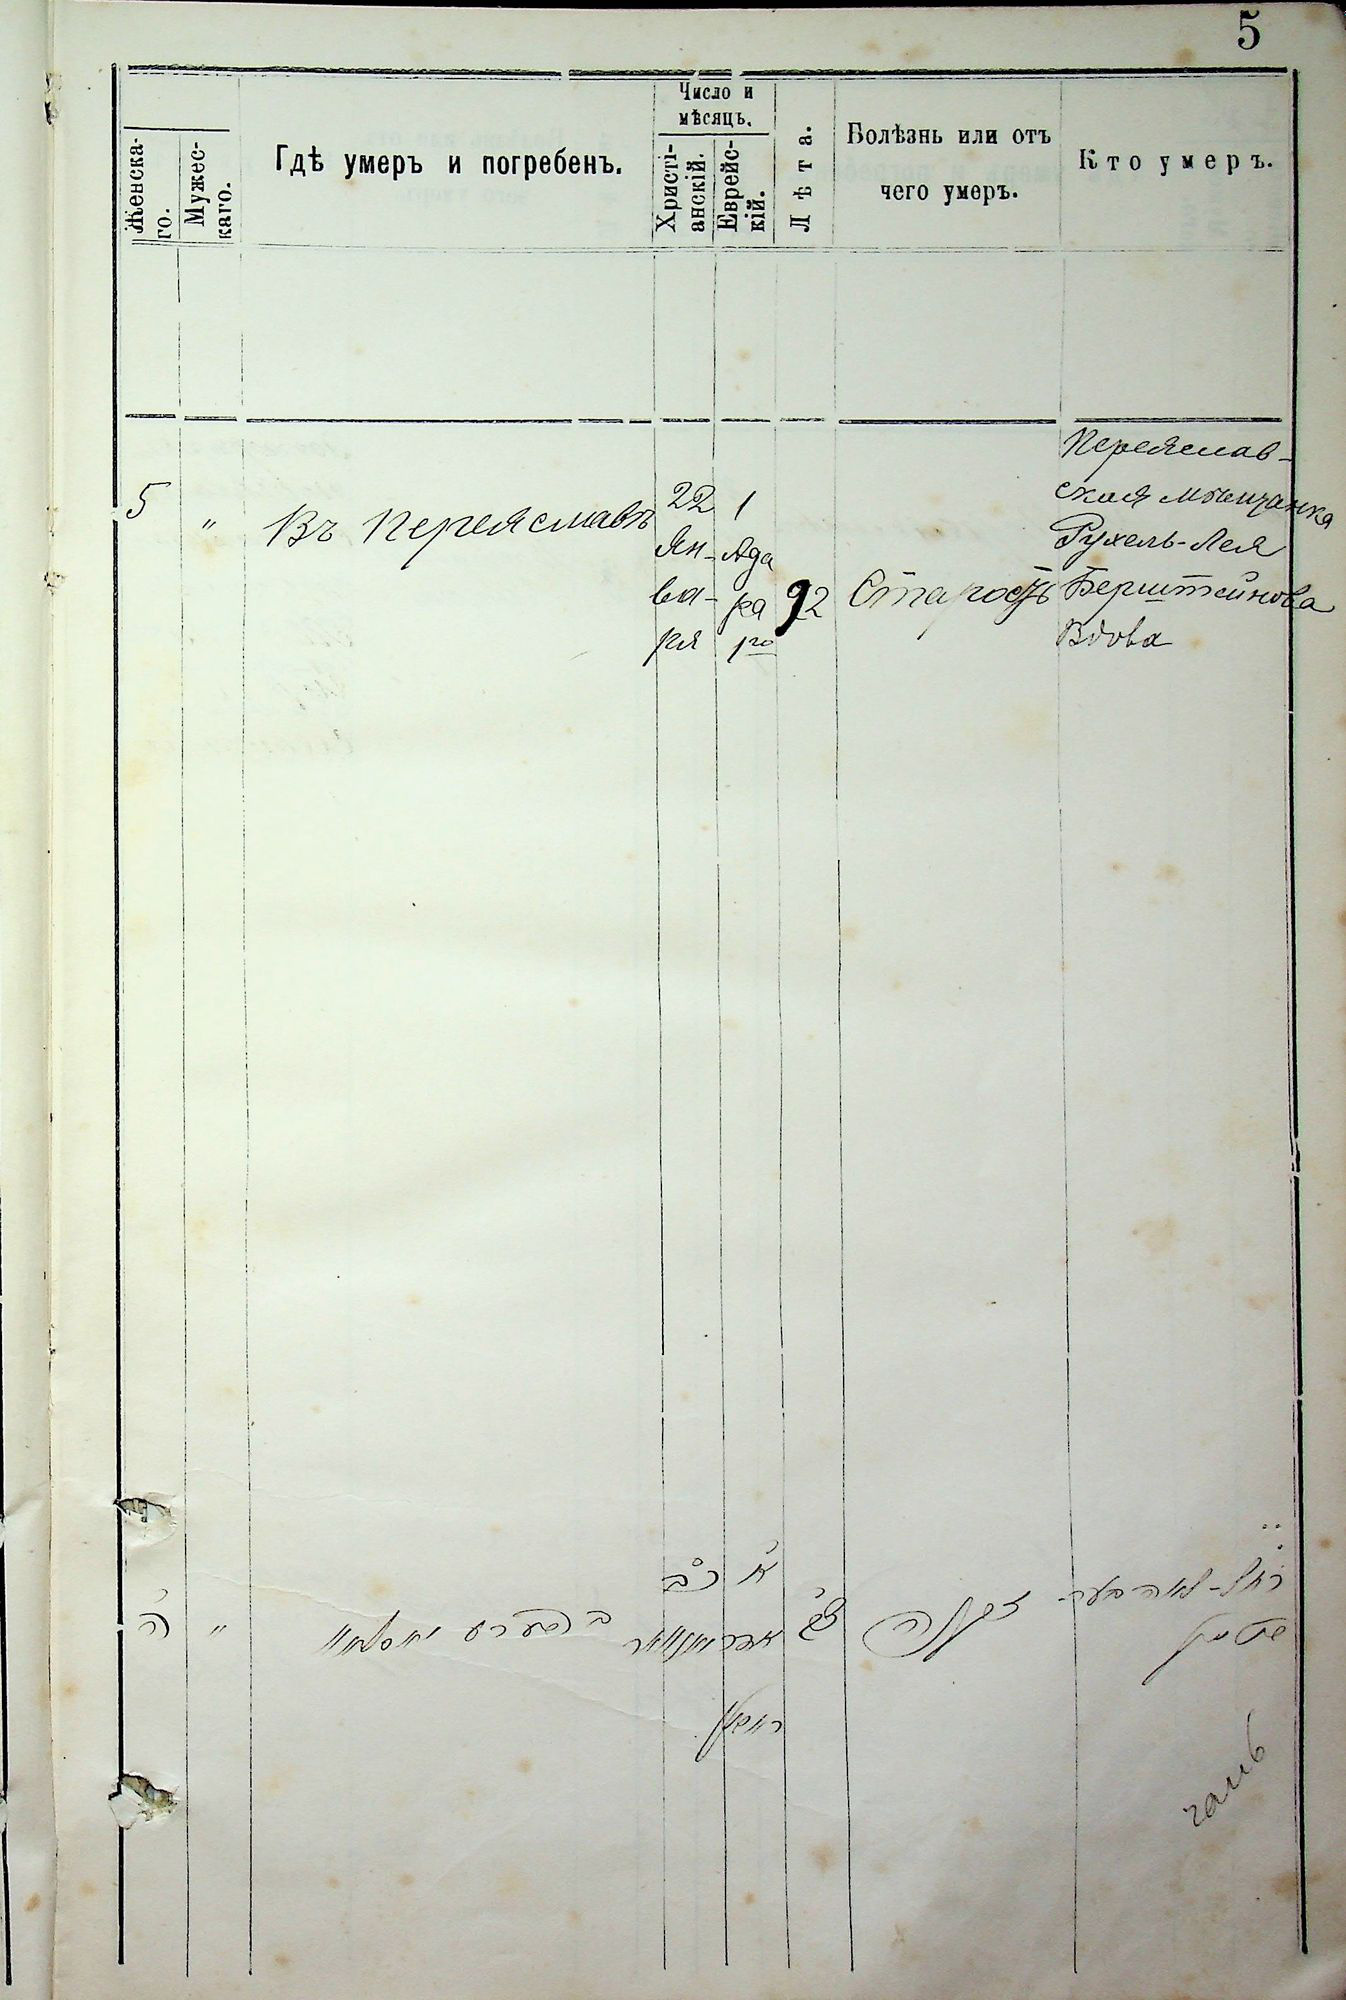 5
Женска-
го.
Мужес-
каго.
Гдѣ умеръ и погребенъ.
Число и
мѣсяцъ.
Христі-
анскій.
Еврейс-
кій.
Лѣта.
Болѣзнь или отъ
чего умеръ.
Кто умеръ.
5
"
Въ Переяславѣ
22
Ян-
ва-
ря
1
Ада
ра
1го
92
Старость
Переяслав-
ская мѣщанка
Рухель-Лея
Берштейнова
Вдова
ה
"
כב
א
יאנוואר
אדר
זקנה